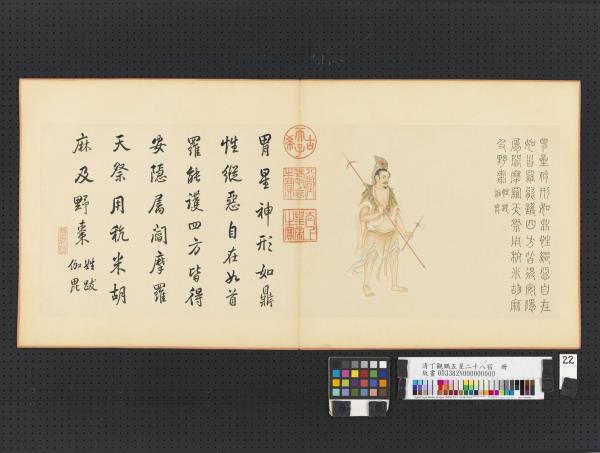 胃星神形如鼎性縱惡自在
如首羅能護四方皆得安隱
屬閻摩羅天祭用秔米胡麻
及野棗 姓跋
伽毘
古希天子
八徵耄念之寶
太上皇帝之寶
胃星神形如鼎
性縱惡自在如首
羅能護四方皆得
安隱屬閻摩羅
天祭用秔米胡
麻及野棗 姓跋
伽毘
清丁觀鵬五星二十八宿 冊
故畫 003382N000000000
22